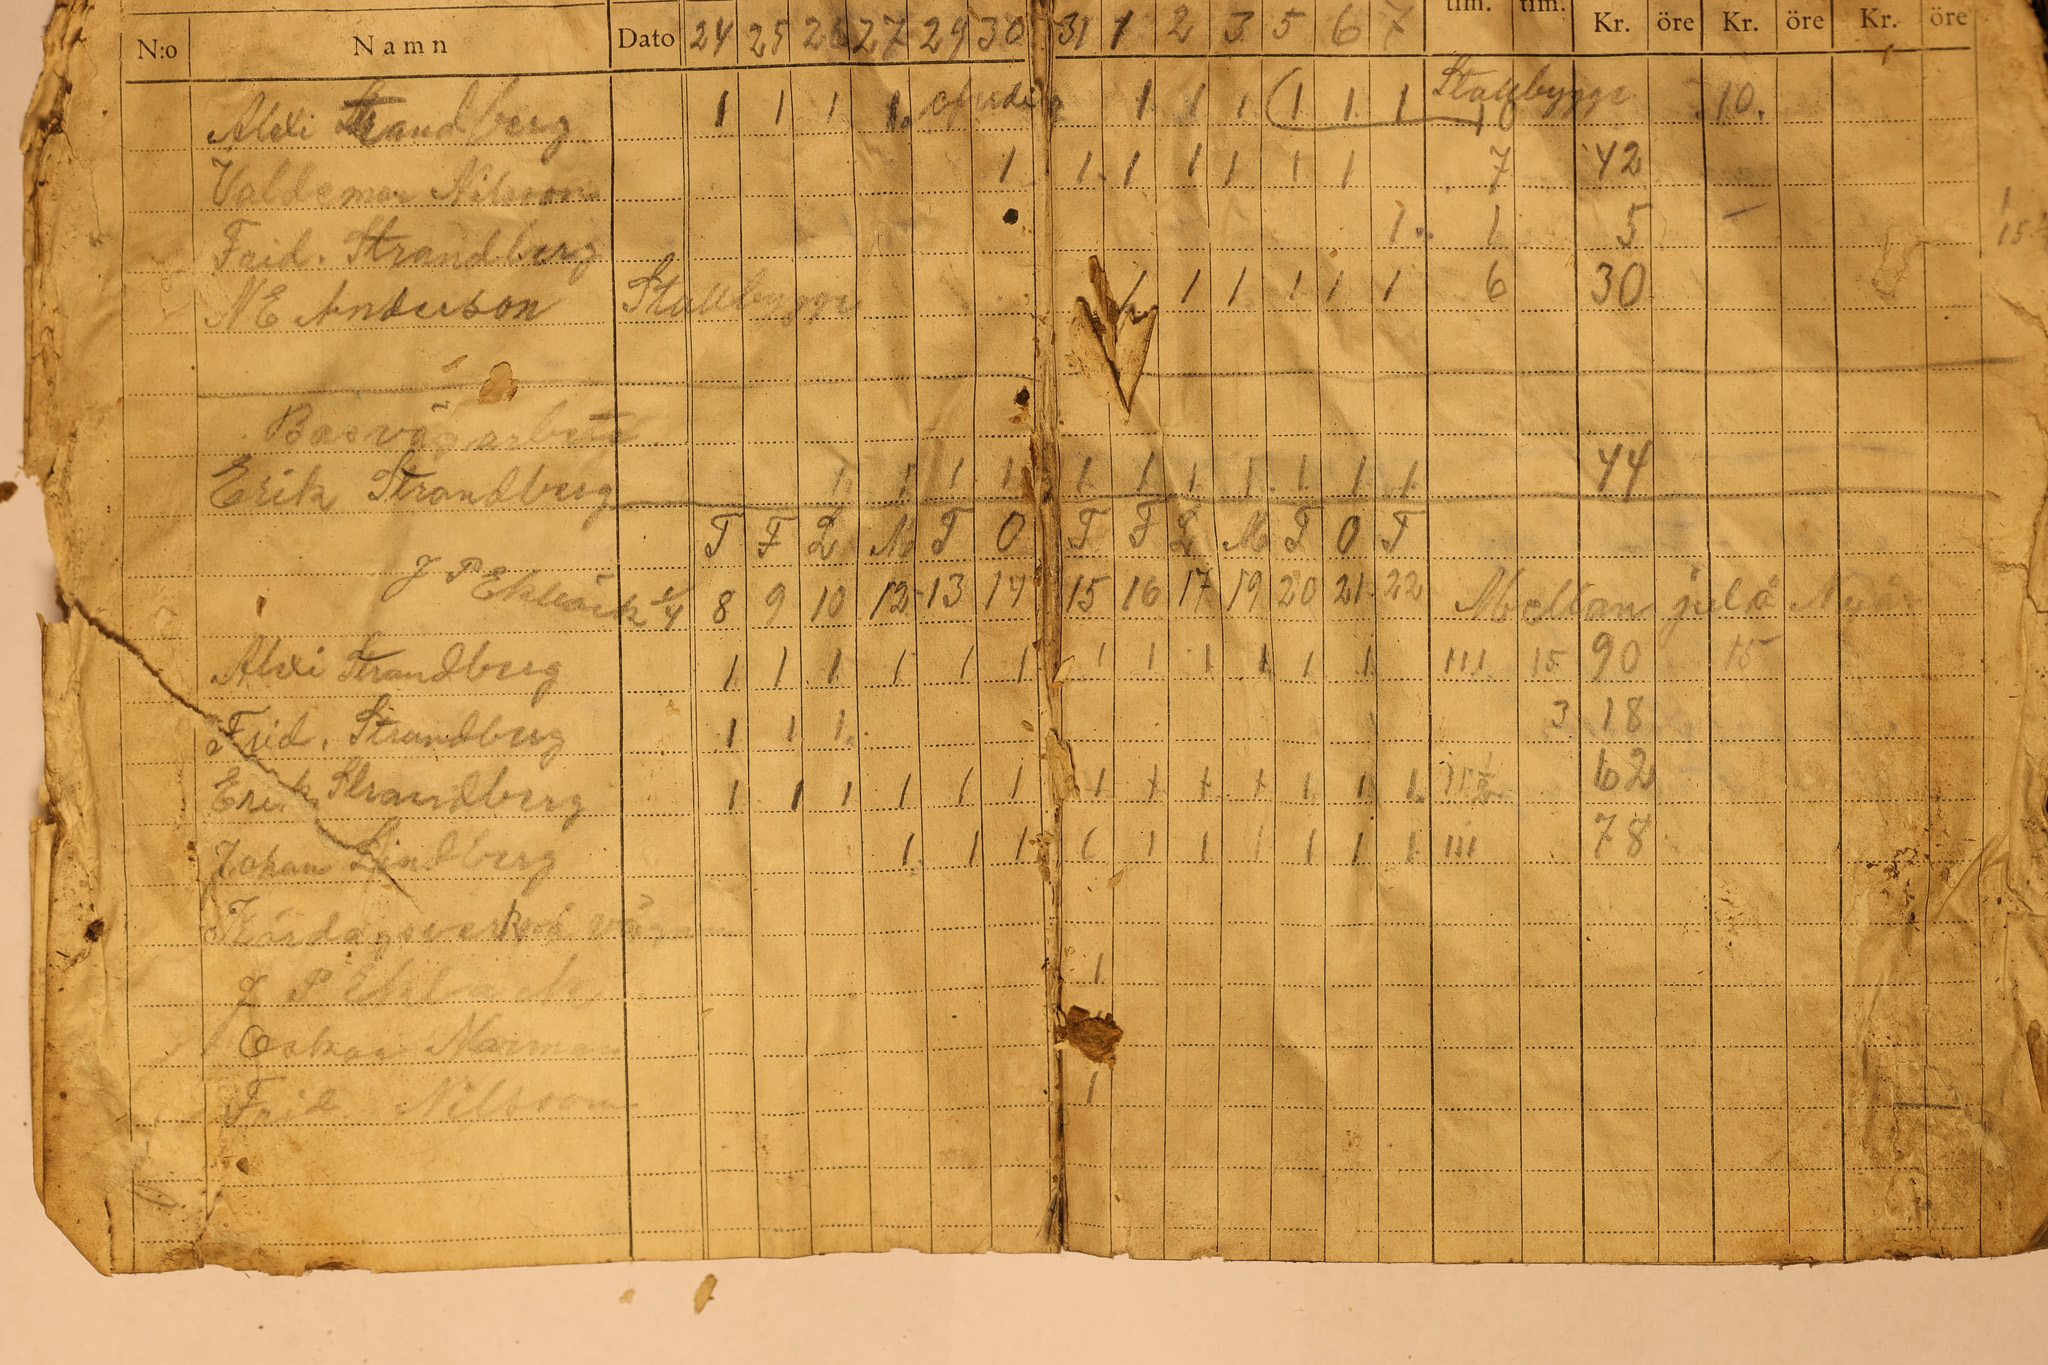 tim. tim.
N:o Namn Dato 24 25 26 27 29 30 31 1 2 3 5 6 7 Kr. öre Kr. öre Kr. öre
Alexi Strandberg 1 1 1 1. 1 1 1 (1 1 1 Stallbygge 10.
Valdemar Nilsson 1 1. 1 1 1 1 1 7 42
Frid. Strandberg 1 1 5 –
N E Anderson Stallbygge 1 1 1 1 1 1 6 30
Basvägarbete
Erik Strandberg 1 1 1 1 1 1 1 1 1 1 1 44
T F L M T O T F L M T O T
J P Ekbäck 8 9 10 12 13 14 15 16 17 19 20 21 22 Mellan jul å Nyår
Alexi Strandberg 1 1 1 1 1 1 1 1 1 1 1 1 111 15 90 15
Frid. Strandberg 1 1 1. 3 18
Erik Strandberg 1 1 1 1 1 1 1 1 1 1 1 1 1. 62
Johan Lindberg 1. 1 1 1 1 1 1 1 1 1 111 78
Kördagsverken vägen
J P Ekbäck 1
Oskar
Frid. Nilsson 1